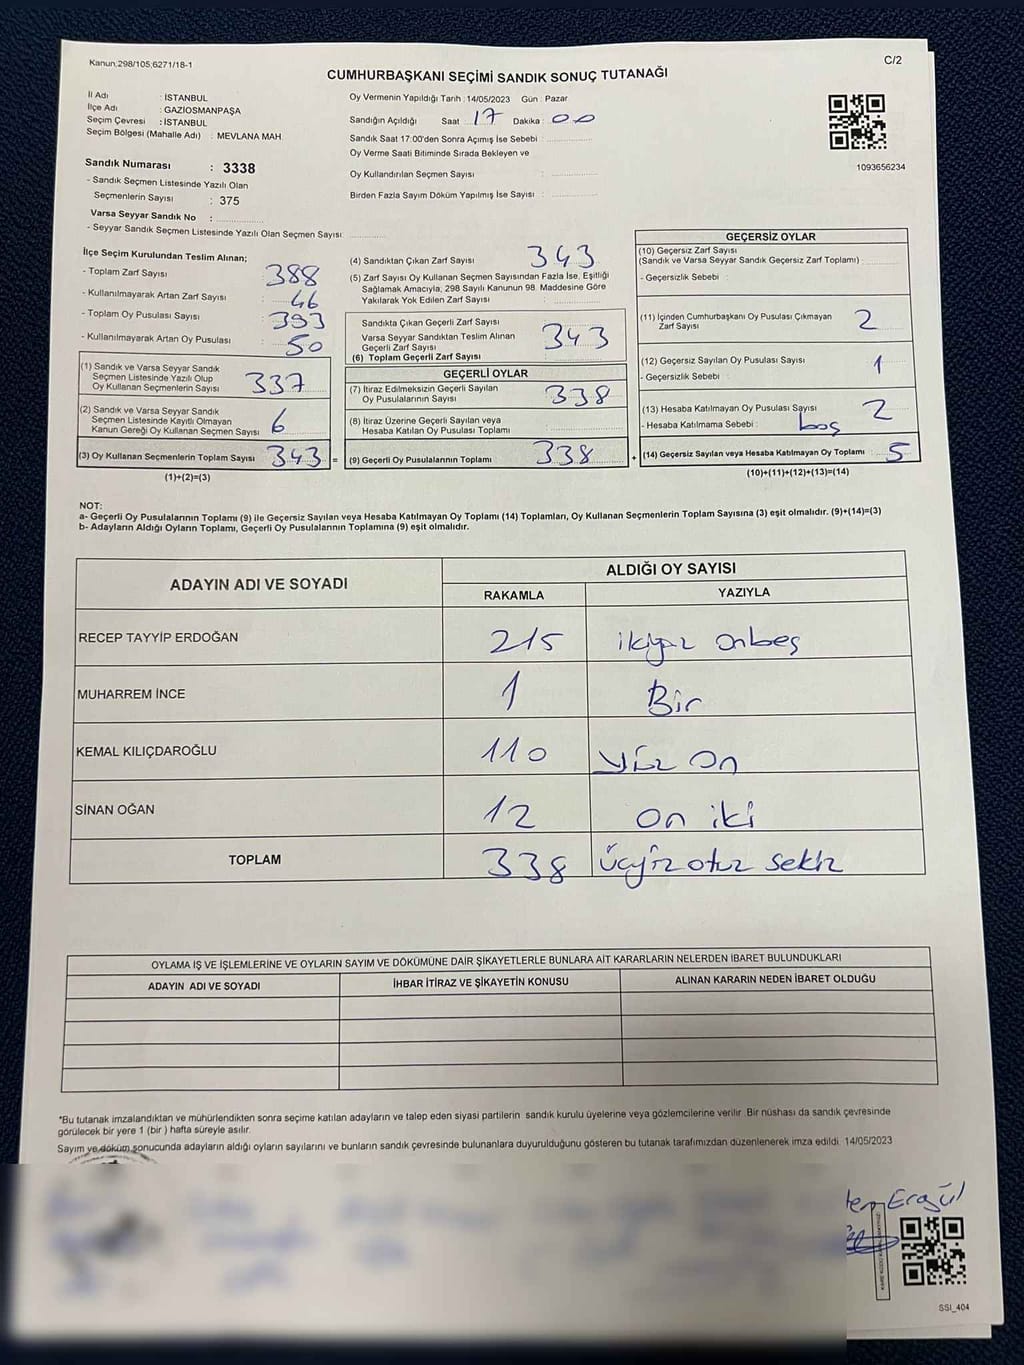 Kanun;298/105;6271/18-1
C/2
CUMHURBAŞKANI SEÇİMİ SANDIK SONUÇ TUTANAĞI
İl Adı : İSTANBUL
İlçe Adı : GAZİOSMANPAŞA
Seçim Çevresi : İSTANBUL
Seçim Bölgesi (Mahalle Adı) : MEVLANA MAH.
Sandık Numarası : 3338
- Sandık Seçmen Listesinde Yazılı Olan
Seçmenlerin Sayısı : 375
Varsa Seyyar Sandık No :
- Seyyar Sandık Seçmen Listesinde Yazılı Olan Seçmen Sayısı:
Oy Vermenin Yapıldığı Tarih :14/05/2023 Gün : Pazar
Sandığın Açıldığı Saat 17 Dakika : 00
Sandık Saat 17:00'den Sonra Açımış İse Sebebi :
Oy Verme Saati Bitiminde Sırada Bekleyen ve
Oy Kullandırılan Seçmen Sayısı :
Birden Fazla Sayım Döküm Yapılmış İse Sayısı :
1093656234
İlçe Seçim Kurulundan Teslim Alınan;
- Toplam Zarf Sayısı : 388
- Kullanılmayarak Artan Zarf Sayısı : 46
- Toplam Oy Pusulası Sayısı : 393
- Kullanılmayarak Artan Oy Pusulası : 50
(1) Sandık ve Varsa Seyyar Sandık
Seçmen Listesinde Yazılı Olup
Oy Kullanan Seçmenlerin Sayısı : 337
(2) Sandık ve Varsa Seyyar Sandık
Seçmen Listesinde Kayıtlı Olmayan
Kanun Gereği Oy Kullanan Seçmen Sayısı : 6
(3) Oy Kullanan Seçmenlerin Toplam Sayısı : 343
(1)+(2)=(3)
(4) Sandıktan Çıkan Zarf Sayısı : 343
(5) Zarf Sayısı Oy Kullanan Seçmen Sayısından Fazla İse, Eşitliği
Sağlamak Amacıyla; 298 Sayılı Kanunun 98. Maddesine Göre
Yakılarak Yok Edilen Zarf Sayısı :
Sandıkta Çıkan Geçerli Zarf Sayısı
Varsa Seyyar Sandıktan Teslim Alınan
Geçerli Zarf Sayısı
(6) Toplam Geçerli Zarf Sayısı : 343
GEÇERLİ OYLAR
(7) İtiraz Edilmeksizin Geçerli Sayılan
Oy Pusulalarının Sayısı : 338
(8) İtiraz Üzerine Geçerli Sayılan veya
Hesaba Katılan Oy Pusulası Toplamı :
= (9) Geçerli Oy Pusulalarının Toplamı : 338
GEÇERSİZ OYLAR
(10) Geçersiz Zarf Sayısı
(Sandık ve Varsa Seyyar Sandık Geçersiz Zarf Toplamı) :
- Geçersizlik Sebebi :
(11) İçinden Cumhurbaşkanı Oy Pusulası Çıkmayan
Zarf Sayısı : 2
(12) Geçersiz Sayılan Oy Pusulası Sayısı : 1
- Geçersizlik Sebebi :
(13) Hesaba Katılmayan Oy Pusulası Sayısı : 2
- Hesaba Katılmama Sebebi : boş
+ (14) Geçersiz Sayılan veya Hesaba Katılmayan Oy Toplamı : 5
(10)+(11)+(12)+(13)=(14)
NOT:
a- Geçerli Oy Pusulalarının Toplamı (9) ile Geçersiz Sayılan veya Hesaba Katılmayan Oy Toplamı (14) Toplamları, Oy Kullanan Seçmenlerin Toplam Sayısına (3) eşit olmalıdır. (9)+(14)=(3)
b- Adayların Aldığı Oyların Toplamı, Geçerli Oy Pusulalarının Toplamına (9) eşit olmalıdır.
ADAYIN ADI VE SOYADI
ALDIĞI OY SAYISI
RAKAMLA YAZIYLA
RECEP TAYYİP ERDOĞAN 215 ikiyüz onbeş
MUHARREM İNCE 1 Bir
KEMAL KILIÇDAROĞLU 110 yüz on
SİNAN OĞAN 12 on iki
TOPLAM 338 üçyüz otuz sekiz
OYLAMA İŞ VE İŞLEMLERİNE VE OYLARIN SAYIM VE DÖKÜMÜNE DAİR ŞİKAYETLERLE BUNLARA AİT KARARLARIN NELERDEN İBARET BULUNDUKLARI
ADAYIN ADI VE SOYADI İHBAR İTİRAZ VE ŞİKAYETİN KONUSU ALINAN KARARIN NEDEN İBARET OLDUĞU
*Bu tutanak imzalandıktan ve mühürlendikten sonra seçime katılan adayların ve talep eden siyasi partilerin sandık kurulu üyelerine veya gözlemcilerine verilir .Bir nüshası da sandık çevresinde
görülecek bir yere 1 (bir ) hafta süreyle asılır.
Sayım ve döküm sonucunda adayların aldığı oyların sayılarını ve bunların sandık çevresinde bulunanlara duyurulduğunu gösteren bu tutanak tarafımızdan düzenlenerek imza edildi. 14/05/2023
Ergül
SSI_404